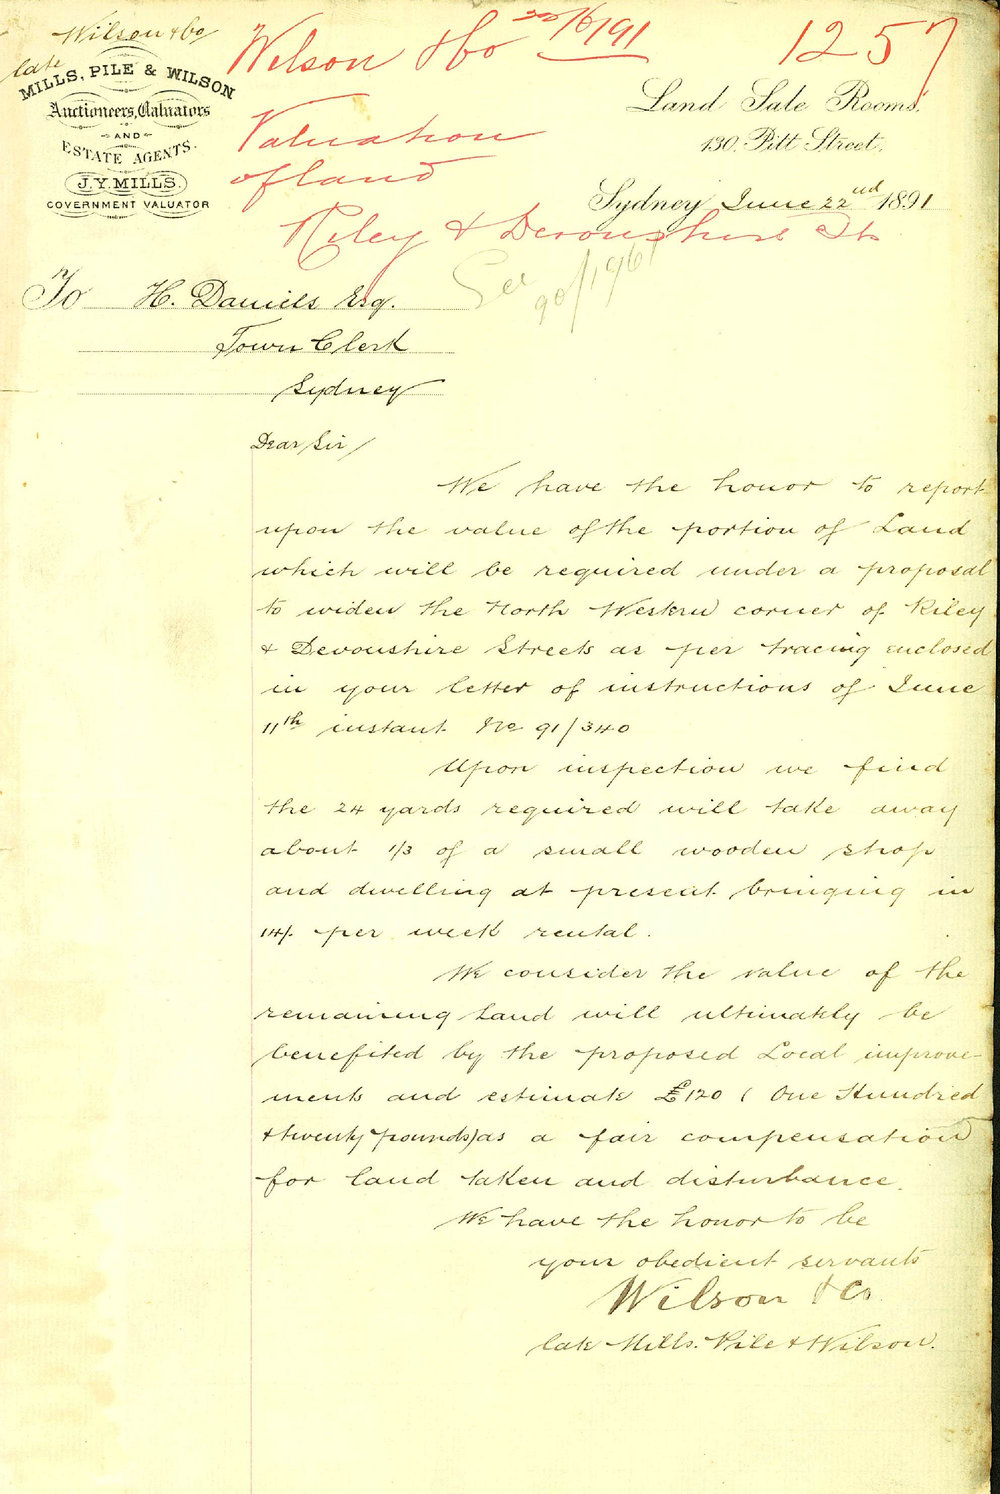 Wilson & Co
late
MILLS, PILE & WILSON
Auctioneers, Valuators
AND
ESTATE AGENTS.
J.Y. MILLS.
GOVERNMENT VALUATOR
Wilson & Co 22/6/91
1257
Valuation
of land
Riley & Devonshire Sts
Land Sale Rooms.
130, Pitt Street.
Sydney June 22nd 1891
See
90/1961
To H. Daniels Esq.
Town Clerk
Sydney
Dear Sir/
We have the honor to report
upon the value of the portion of Land
which will be required under a proposal
to widen the North Western corner of Riley
& Devonshire Streets as per tracing enclosed
in your letter of instructions of June
11th instant No 91/340
Upon inspection we find
the 24 yards required will take away
about 1/3 of a small wooden shop
and dwelling at present bringing in
14/- per week rental.
We consider the value of the
remaining Land will ultimately be
benefited by the proposed Local improve-
ments and estimate £120 (One Hundred
& twenty pounds) as a fair compensation
for land taken and disturbance.
We have the honor to be
your obedient servants
Wilson & Co
late Mills. Pile & Wilson.